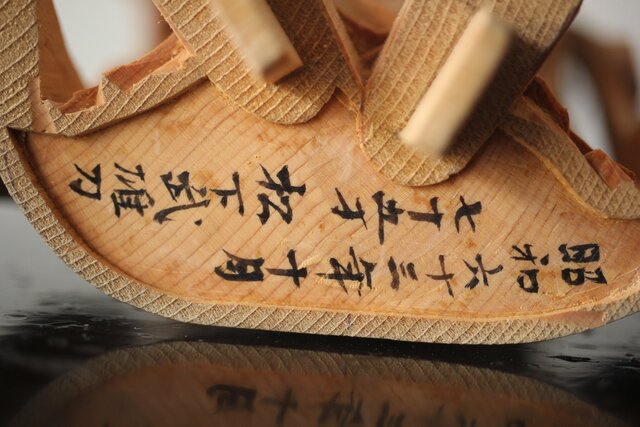 昭和六十三年十月
七十五才 松下武雄刀